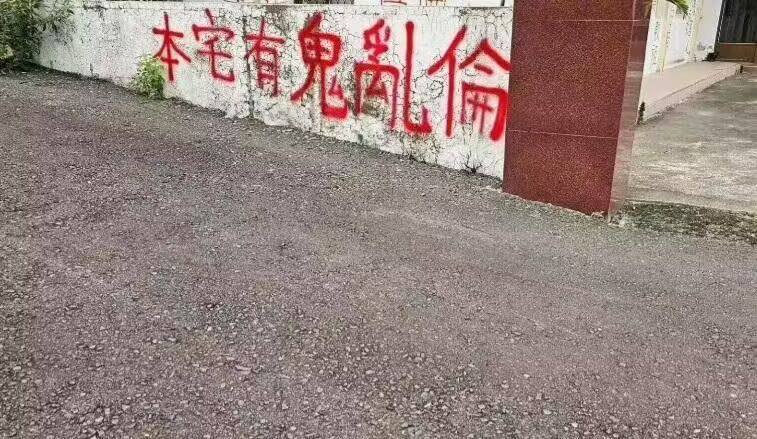 本宅有鬼亂倫